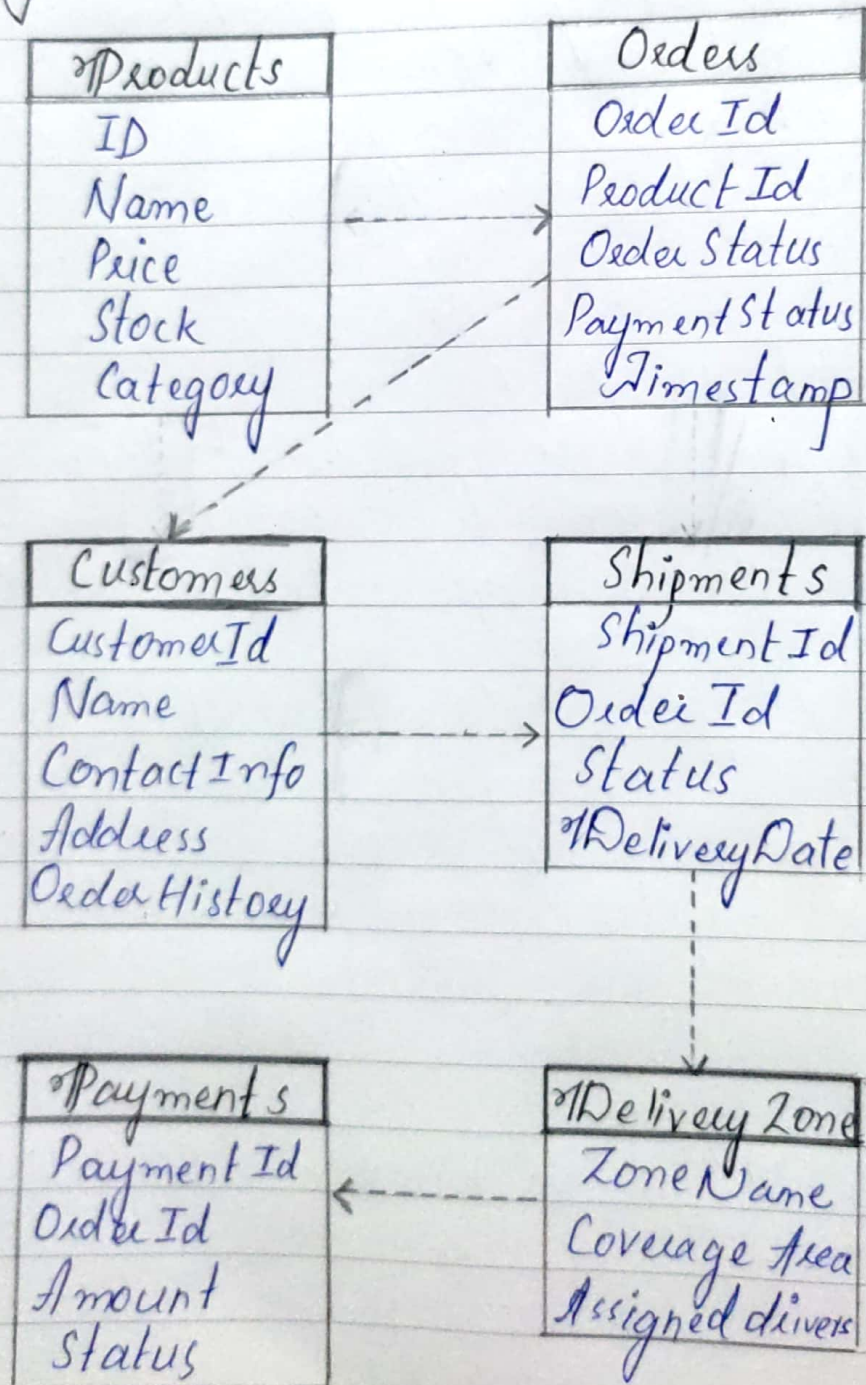 Products
ID
Name
Price
Stock
Category
Orders
Order Id
Product Id
Order Status
Payment Status
Timestamp
Customers
CustomerId
Name
Contact Info
Address
Order History
Shipments
Shipment Id
Order Id
Status
Delivery Date
Payments
Payment Id
Order Id
Amount
Status
Delivery Zone
Zone Name
Coverage Area
Assigned drivers